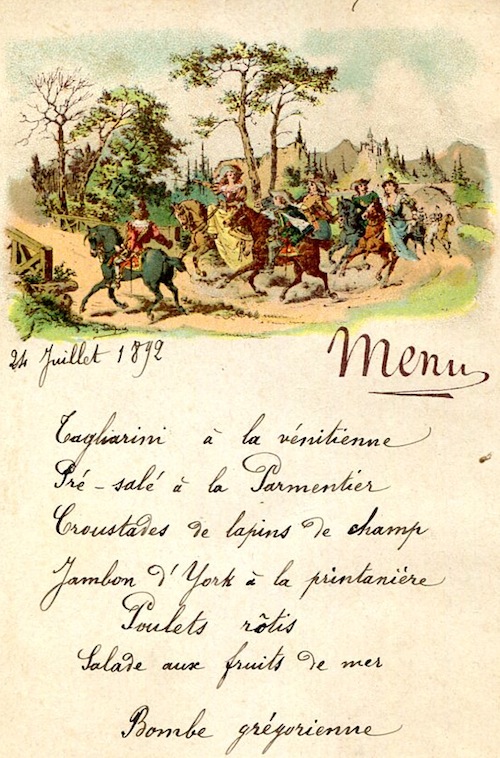 24 Juillet 1892
Menu
Tagliarini à la vénitienne
Pré-salé à la Parmentier
Croustades de lapins de champ
Jambon d'York à la printanière
Poulets rôtis
Salade aux fruits de mer
Bombe grégorienne